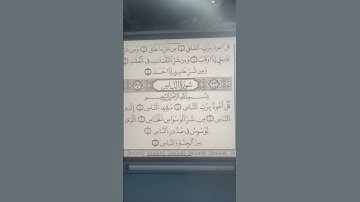 قُلْ أَعُوذُ بِرَبِّ الْفَلَقِ ۝ مِن شَرِّ مَا خَلَقَ ۝ وَمِن شَرِّ
غَاسِقٍ إِذَا وَقَبَ ۝ وَمِن شَرِّ النَّفَّاثَاتِ فِي الْعُقَدِ ۝
وَمِن شَرِّ حَاسِدٍ إِذَا حَسَدَ ۝
سُورَةُ النَّاسِ
بِسْمِ اللَّهِ الرَّحْمَٰنِ الرَّحِيمِ
قُلْ أَعُوذُ بِرَبِّ النَّاسِ ۝ مَلِكِ النَّاسِ ۝ إِلَٰهِ
النَّاسِ ۝ مِن شَرِّ الْوَسْوَاسِ الْخَنَّاسِ ۝ الَّذِي
يُوَسْوِسُ فِي صُدُورِ النَّاسِ ۝
مِنَ الْجِنَّةِ وَالنَّاسِ ۝